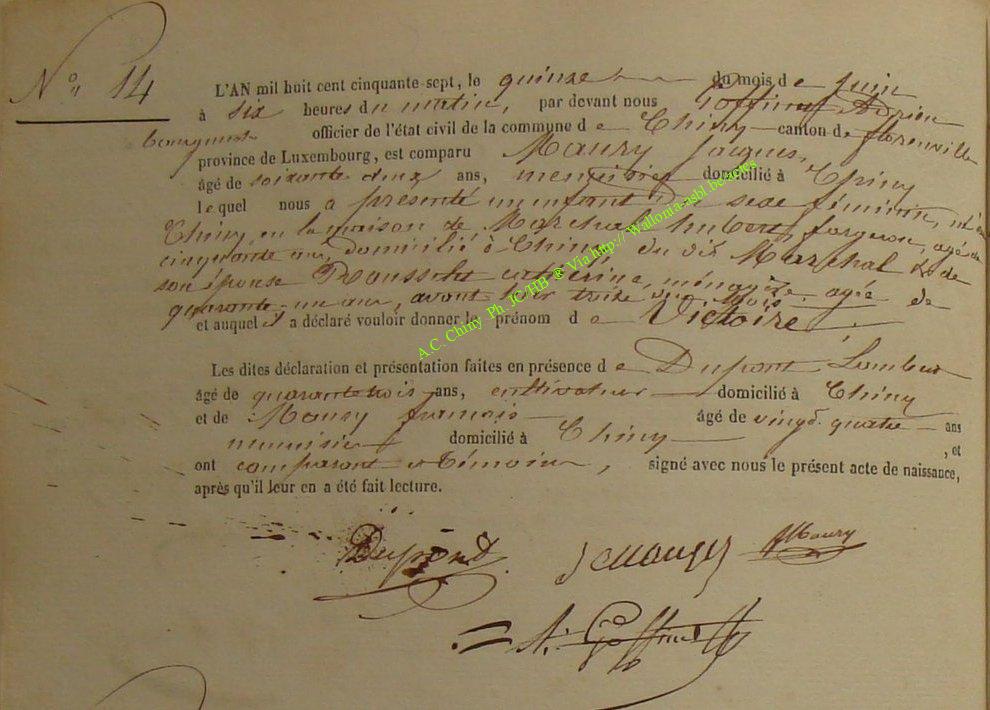 N° 14
L'AN mil huit cent cinquante-sept, le quinze du mois de juin
à six heures du matin, par devant nous Goffinet Adrien
bourgmestre officier de l'état civil de la commune de Chiny canton de florenville
province de Luxembourg, est comparu Maury Jacques,
âgé de soixante deux ans, menuisier domicilié à Chiny
lequel nous a présenté un enfant du sexe féminin, né à
Chiny, en la maison de Marchal forgeron, agé de
cinquante ans, domicilié à Chiny du dit Marchal & de
son épouse catherine, ménagère, agée de
quarante-un ans, avant hier treize du mois
et auquel il a déclaré vouloir donner le prénom de Victoire.
Les dites déclaration et présentation faites en présence de Dupont Lambert
âgé de quarante trois ans, cultivateur domicilié à Chiny
et de Maury francois âgé de vingt quatre ans
menuisier domicilié à Chiny , et
ont comparant et témoins, signé avec nous le présent acte de naissance,
après qu'il leur en a été fait lecture.
Dupond Maury
A. Goffinet
A.C. Chiny Ph. JC/HB ® Via http:// Wallonia-asbl.be/actes